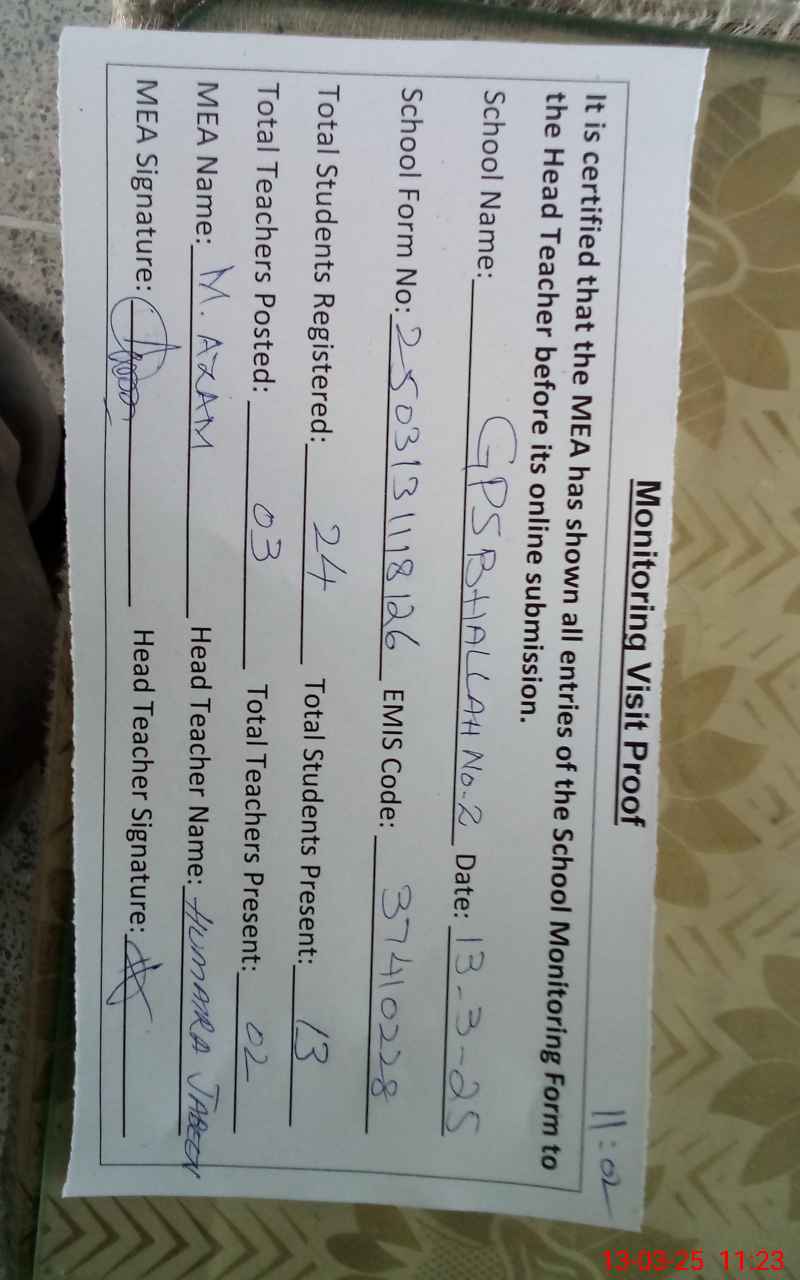 11:02
Monitoring Visit Proof
It is certified that the MEA has shown all entries of the School Monitoring Form to
the Head Teacher before its online submission.
School Name: GPS BHALLAH No.2 Date: 13-3-25
School Form No: 2503131118126 EMIS Code: 37410228
Total Students Registered: 24 Total Students Present: 13
Total Teachers Posted: 03 Total Teachers Present: 02
MEA Name: M. AZAM Head Teacher Name: HUMAIRA JABEEN
MEA Signature: Head Teacher Signature:
13-03-25 11:23